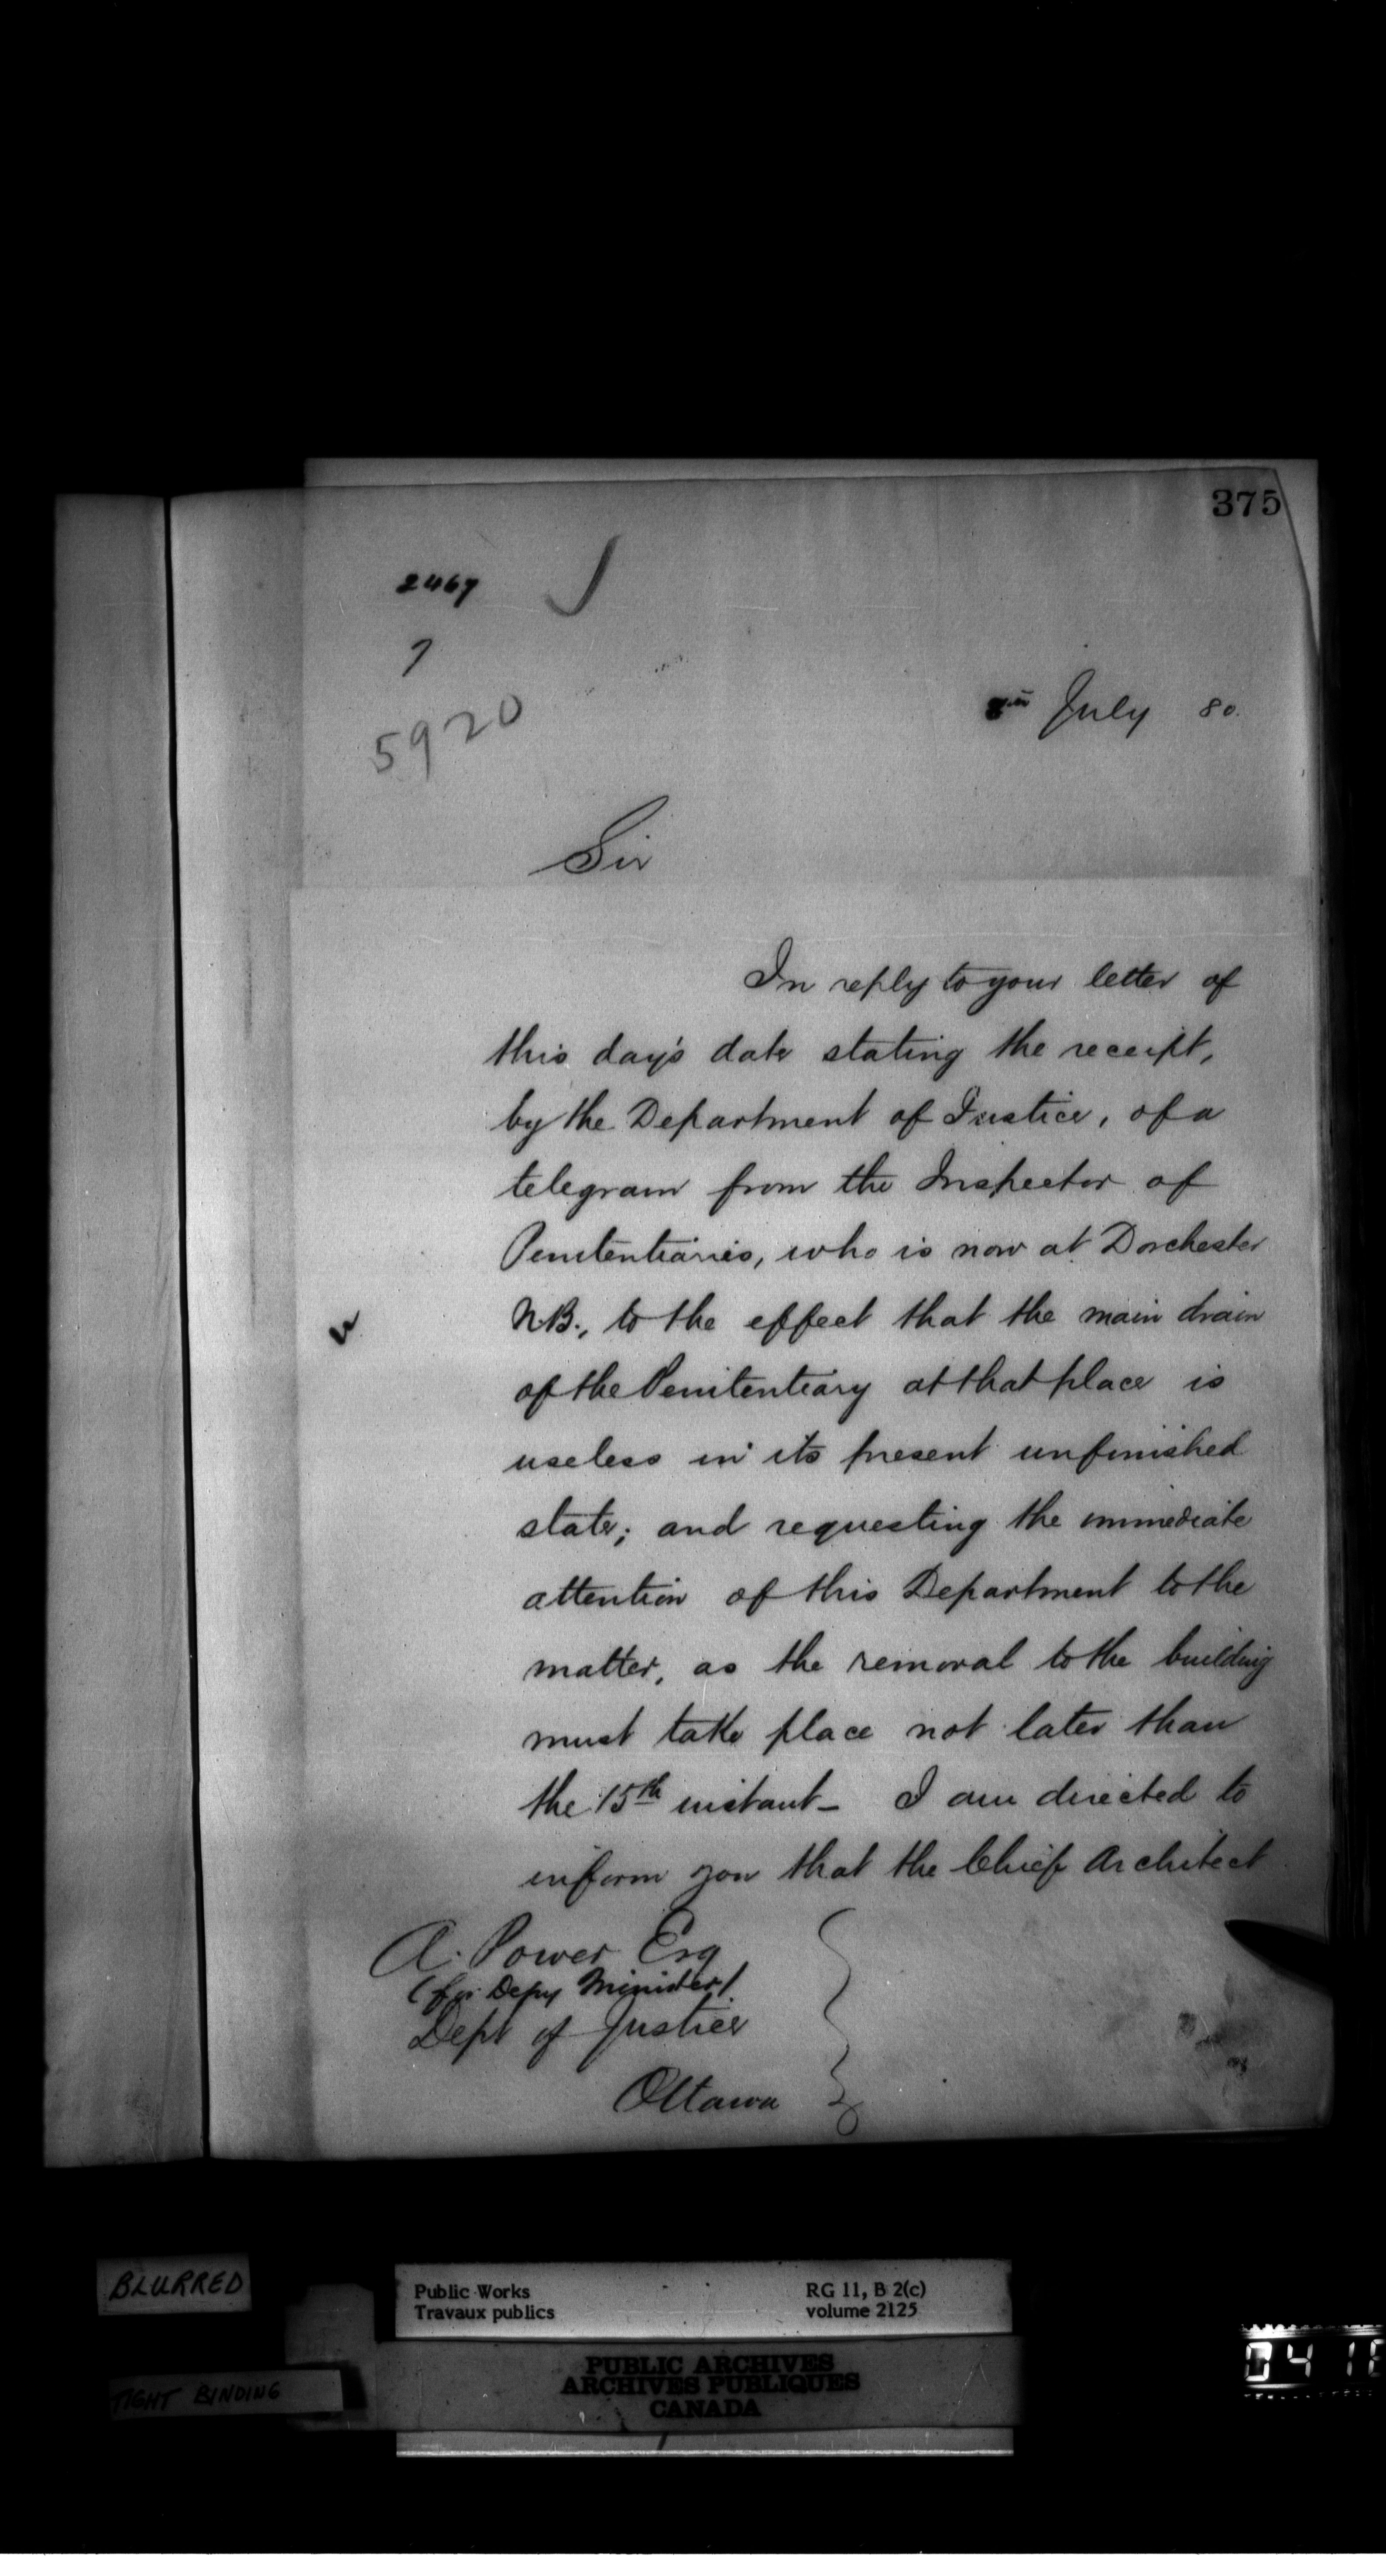 375
2467
7
5920
8th July 80.
Sir
In reply to your letter of
this day's date stating the receipt,
by the Department of Justice, of a
telegram from the Inspector of
Penitentiaries, who is now at Dorchester
N.B., to the effect that the main drain
of the Penitentiary at that place is
useless in its present unfinished
state; and requesting the immediate
attention of this Department to the
matter, as the removal to the building
must take place not later than
the 15th instant - I am directed to
inform you that the Chief Architect
A. Power Esq
(for Depy Minister)
Dept of Justice
Ottawa
BLURRED
TIGHT BINDING
Public Works
Travaux publics
RG 11, B 2(c)
volume 2125
PUBLIC ARCHIVES
ARCHIVES PUBLIQUES
CANADA